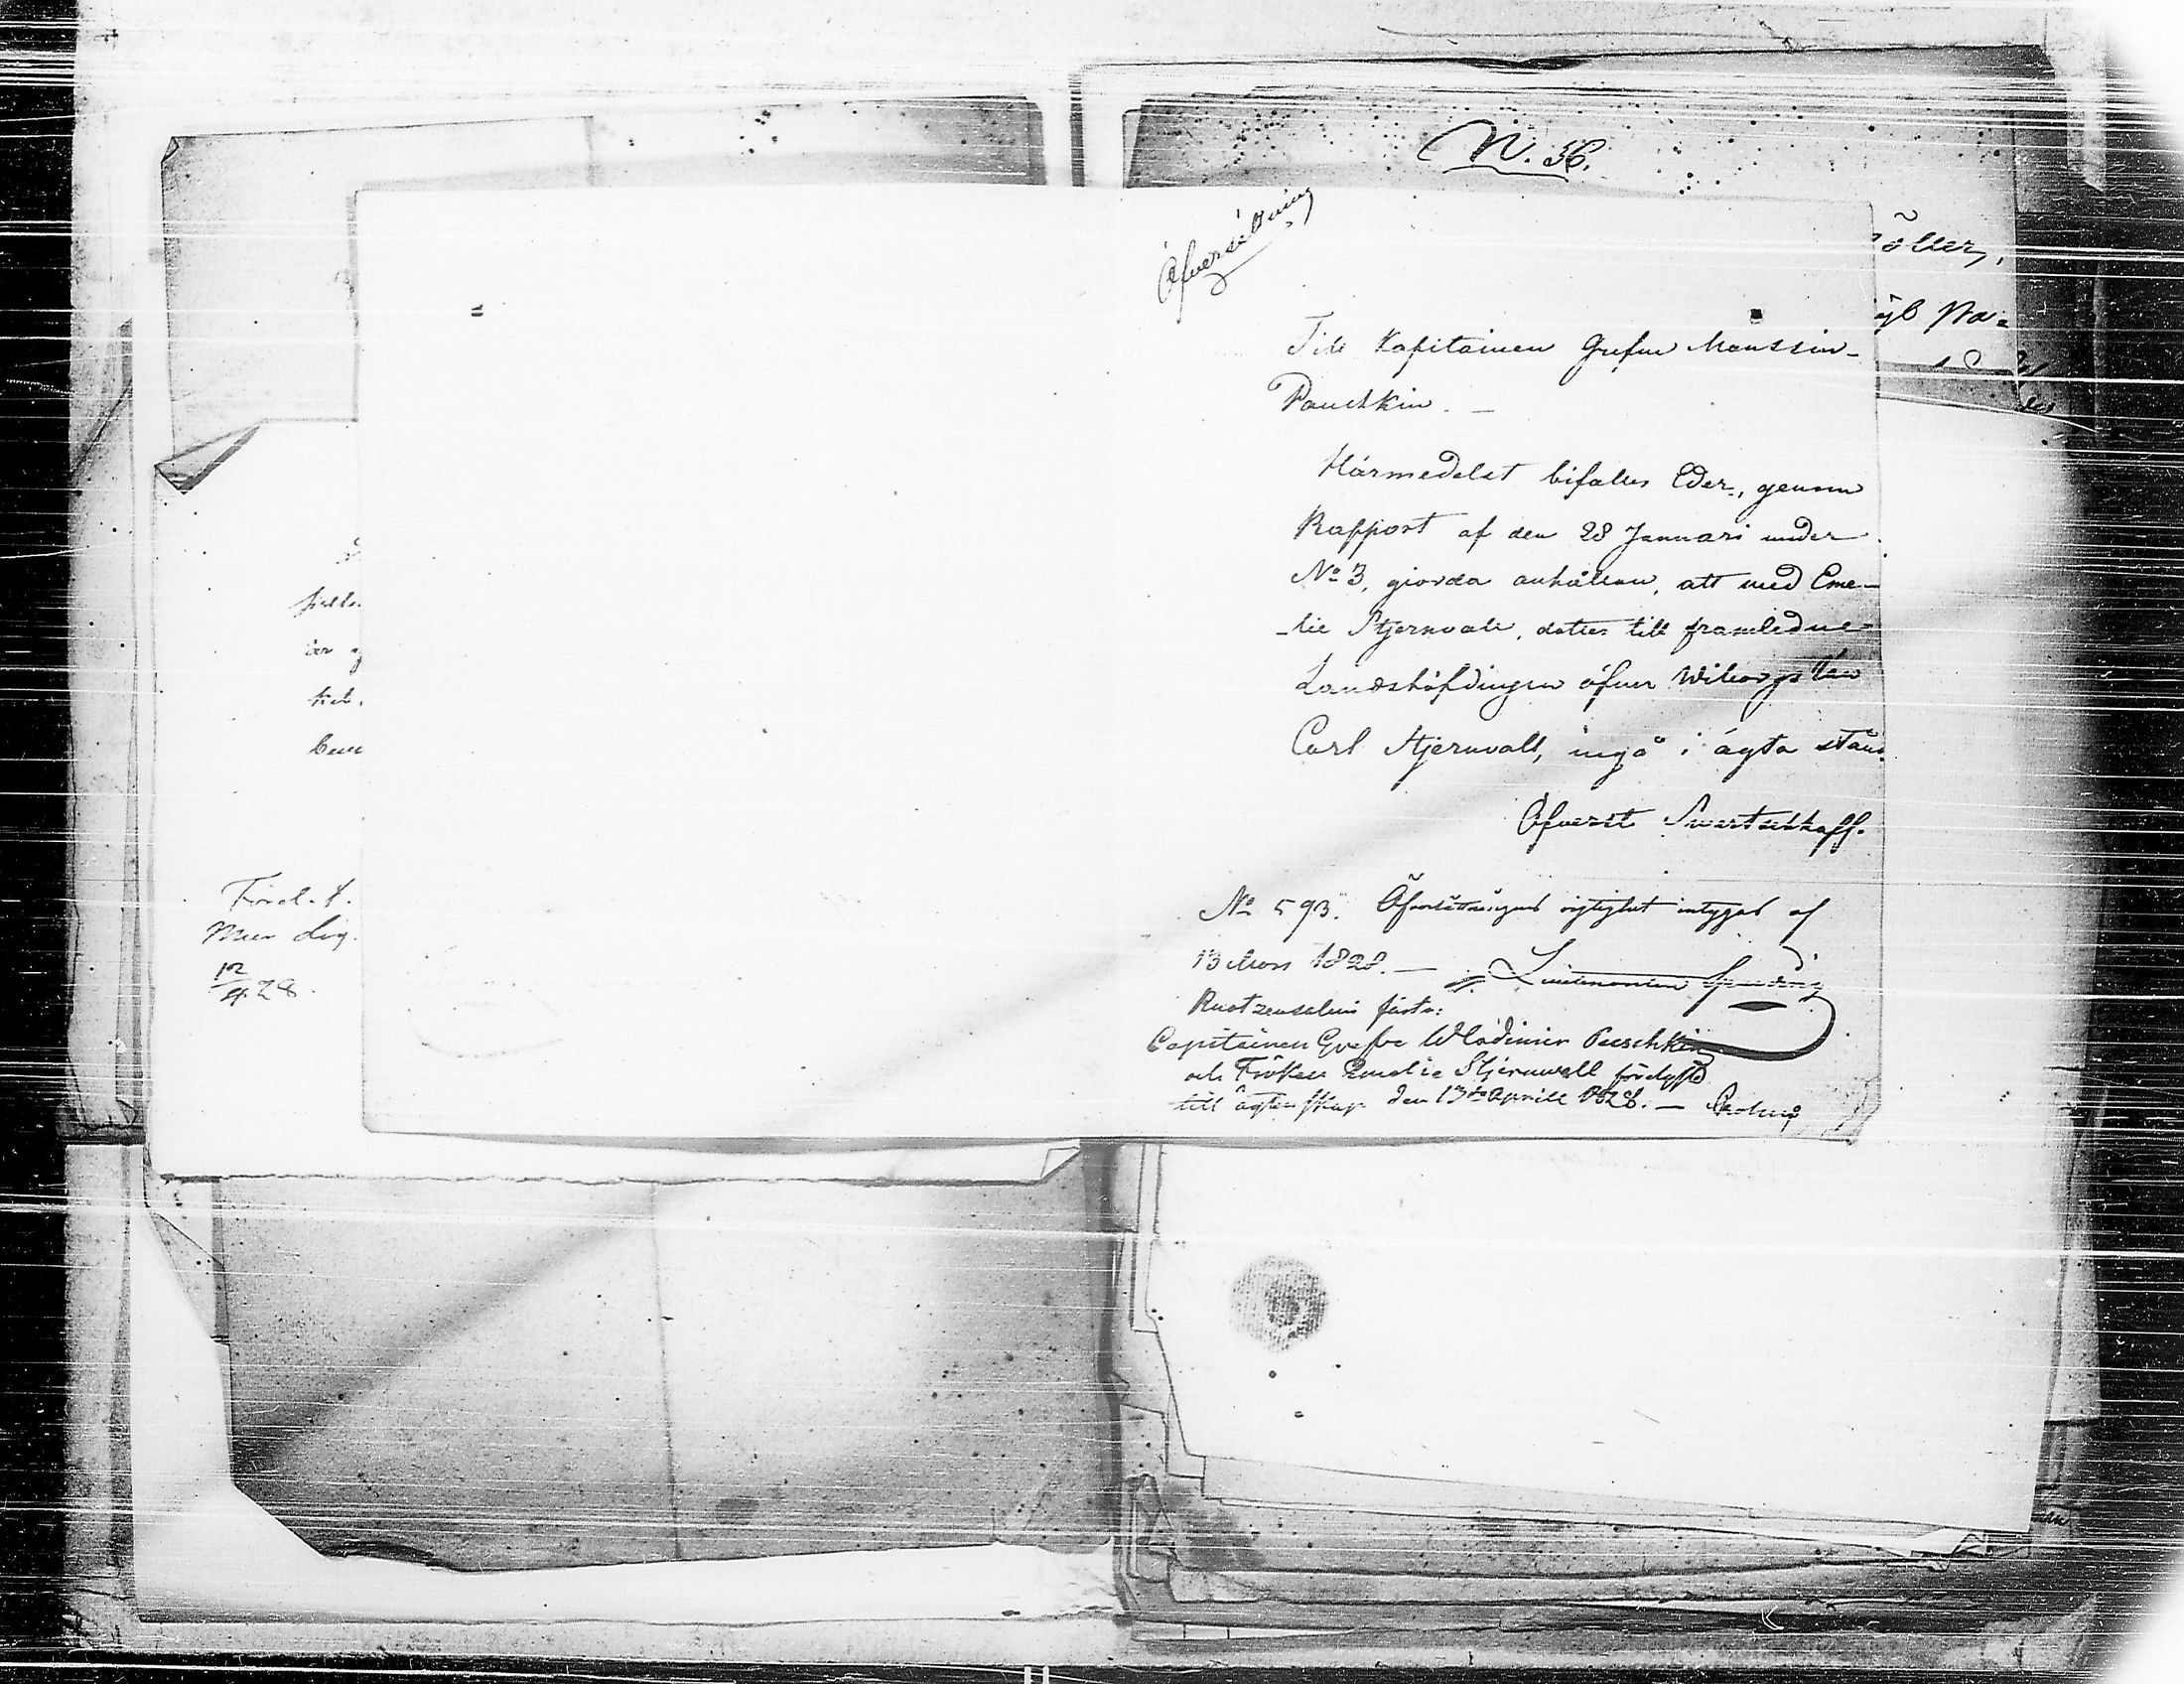 N. 56.
Öfversättning
Till Kapitainen Grefve Moussin-
Pouschkin. —
Härmedelst bifalles Eder, genom
Rapport af den 28 Januari under
No 3, gjorda anhållan, att med Eme-
-lie Stjernvall, dotter till framledne
Landshöfdingen öfver Wiborgs Län
Carl Stjernvall, ingå i ägta stånd.
Öfverste
No 593. Öfversättningens rigtighet intygas af
13 Mars 1828. — Lieutenanten
Ruotzensalmi fästn:
Capitainen Grefve Wladimir Puschkin
och Fröken Emelie Stjernwall förelyste
till ägtenskap den 13de Aprill 1828. —
är
12
4 28.